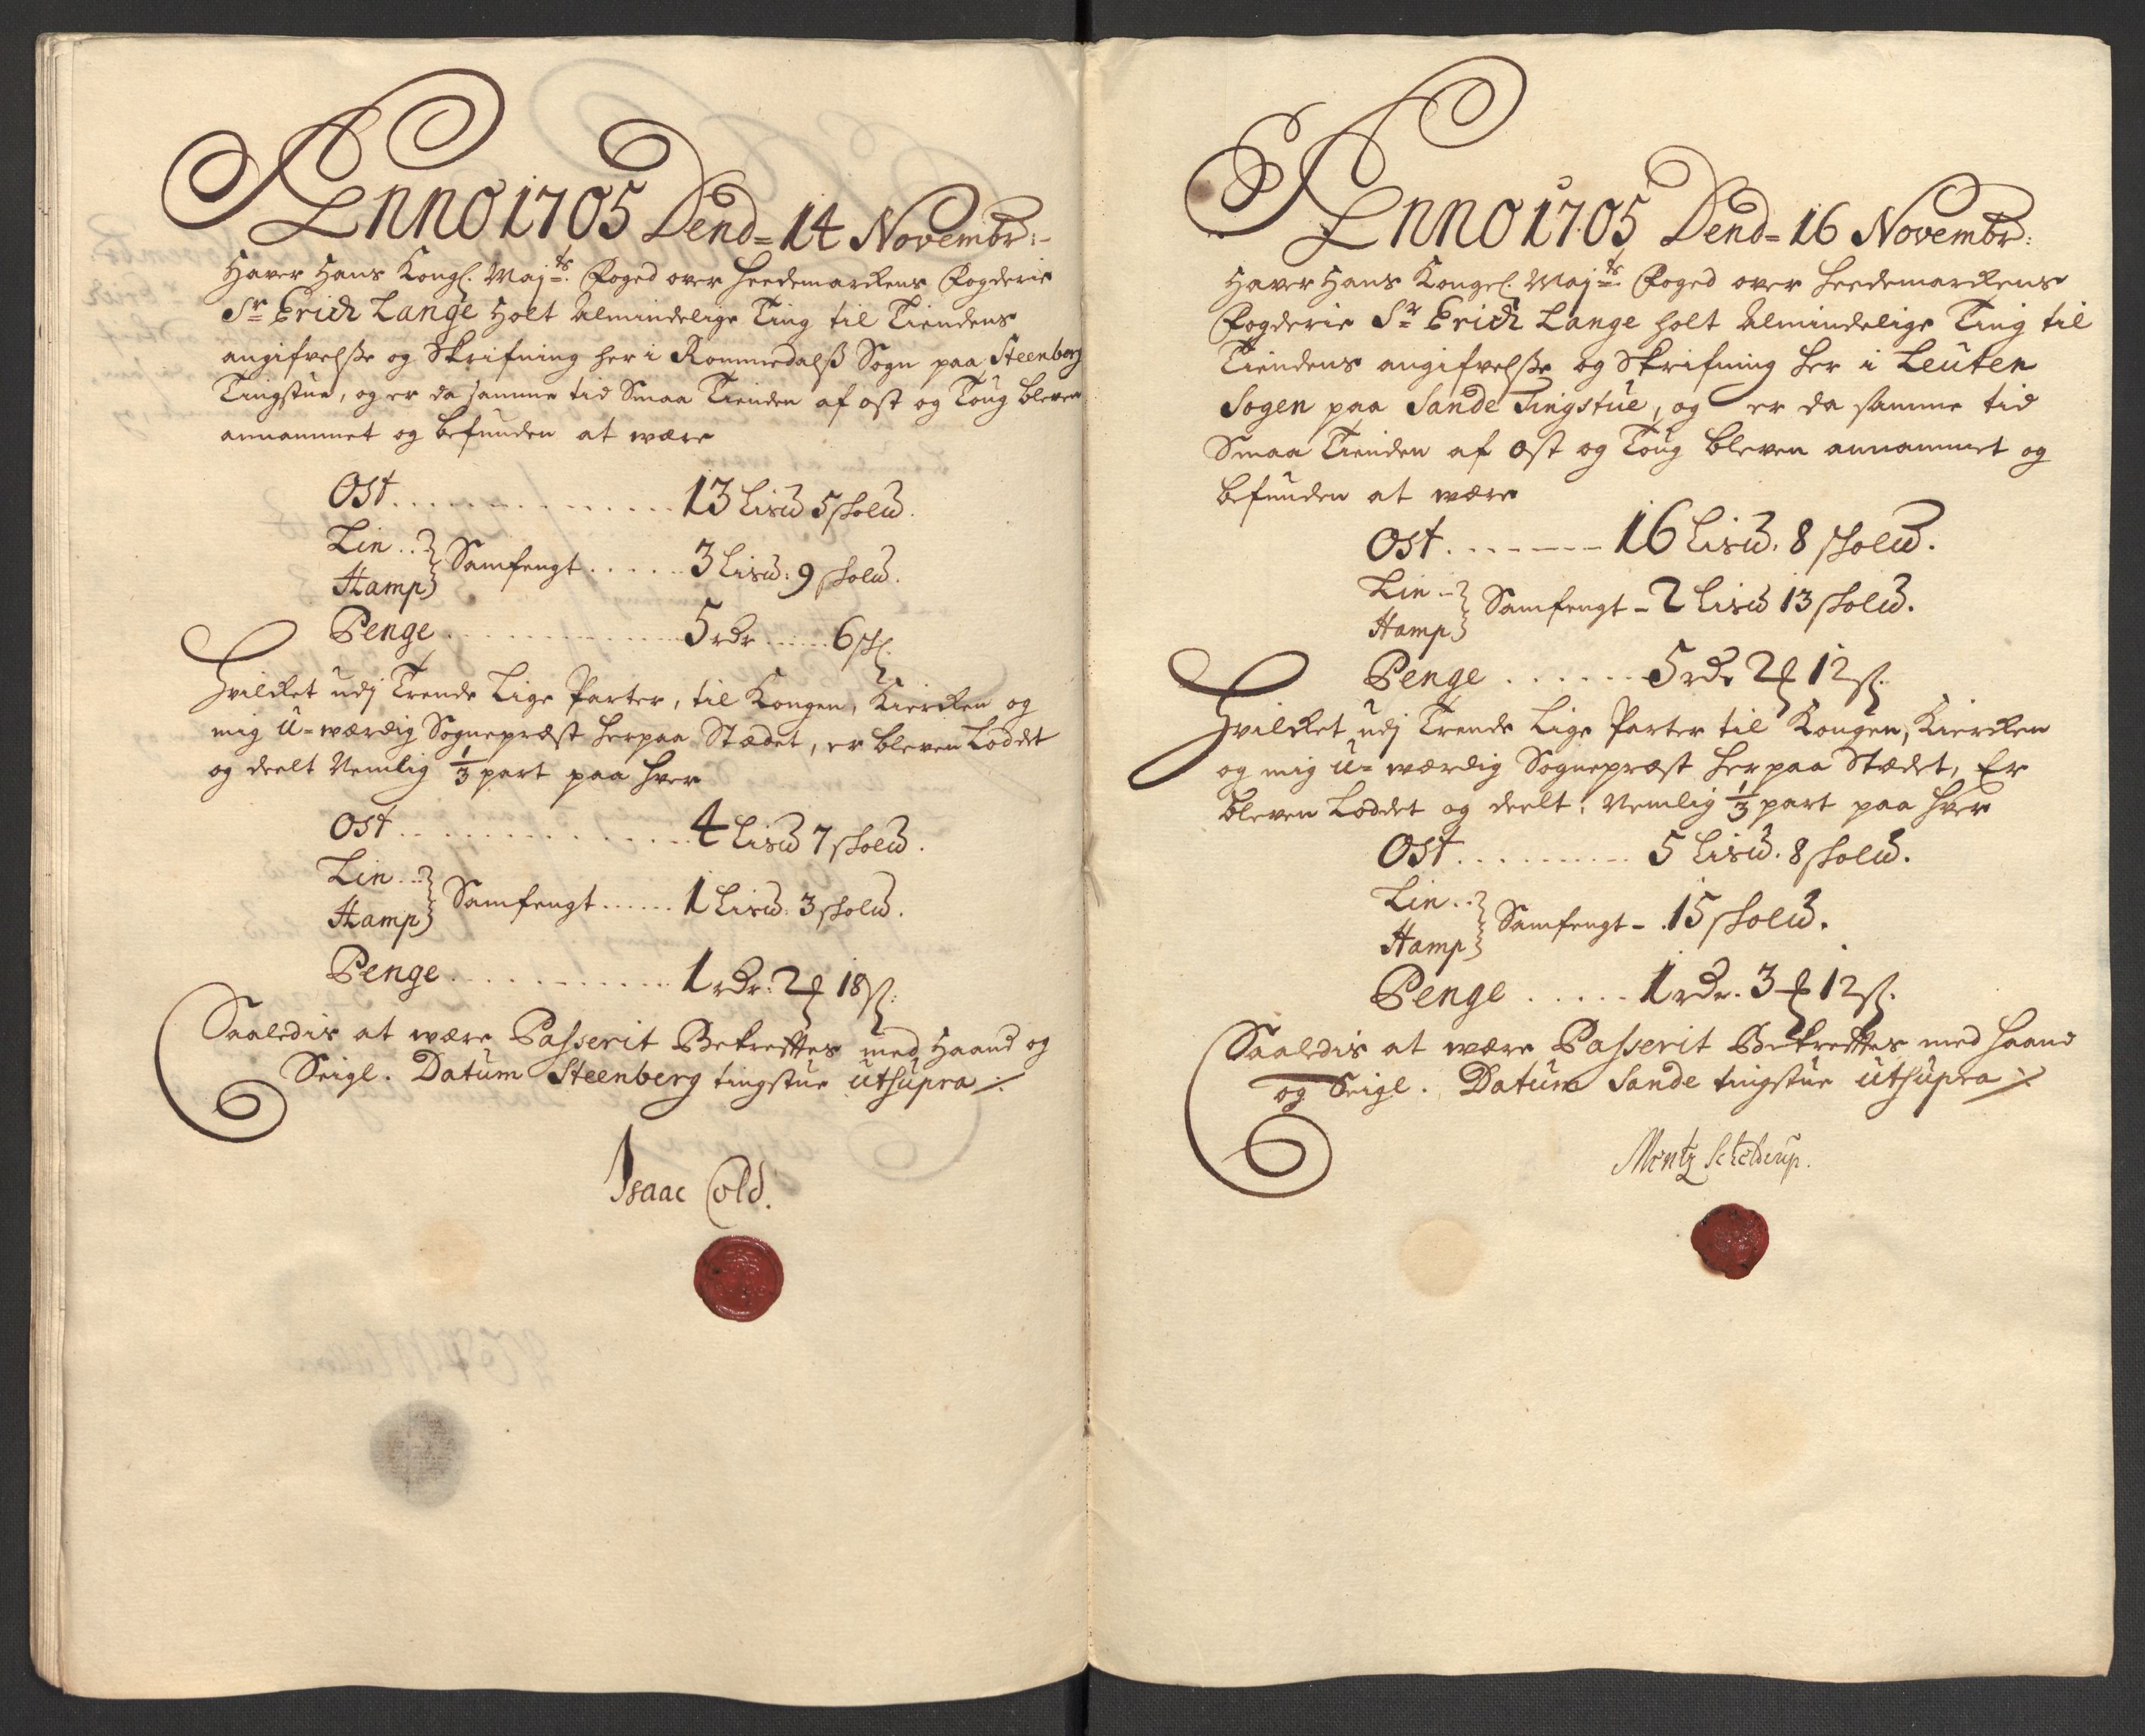 Anno 1705 Dend= 14 Novembr:
Haver Hans Kongl. Maj:ts Foged over Heedemarckens Fogderie
Sr Erich Lange Holt Almindelige Ting til Tiendens
angifvelsse og Skrifning her i Rommedalss Sogn paa Steenberg
Tingstue, og er da samme tid Smaa Tienden af ost og Toug bleven
annammet og befunden at være
Ost 13 Lisƀ 5 skolƀ.
Lin
Hamp } Samfengt 3 Lisƀ: 9 skolƀ.
Penge 5 rdr 6 sk.
Hvilcket udj Trende Lige Parter, til Kongen, Kiercken og
mig U=værdig Sognepræst herpaa Stædet, er bleven Loddet
og deelt Nemlig 1/3 part paa hver
Ost 4 Lisƀ 7 skolƀ.
Lin
Hamp } Samfengt 1 Lisƀ: 3 skolƀ.
Penge 1 rdr: 2 ꝑ 18 sk:
Saaledis at være Passerit Bekrefftes med Haand og
Seigl. Datum Steenberg tingstue utsupra
Isaac Cold.
Anno 1705 Dend= 16 Novembr:
Haver Hans Kongel. Maj:ts Foged over Heedemarckens
Fogderie Sr Erich Lange holt Almindelige Ting til
Tiendens angifvelsse og Skrifning her i Leuten
Sogen paa Sande Tingstue, og er da samme tid
Smaa Tienden af Ost og Toug bleven annammet og
befunden at være
Ost 16 Lisƀ. 8 skolƀ.
Lin
Hamp } Samfengt - 2 Lisƀ 13 skolƀ.
Penge 5 rdr 2 ꝑ 12 sk.
Hvilcket udj Trende Lige Parter til Kongen, Kiercken
og mig U= værdig Sognepræst herpaa Stædet, Er
bleven Loddet og deelt, Nemlig 1/3 part paa hver
Ost 5 Lisƀ. 8 skolƀ.
Lin
Hamp } Samfengt - 15 skolƀ.
Penge 1 rdr. 3 ꝑ 12 sk.
Saaledis at være Passerit Bekrefftes med haand
og Seigl. Datum Sande tingstue utsupra